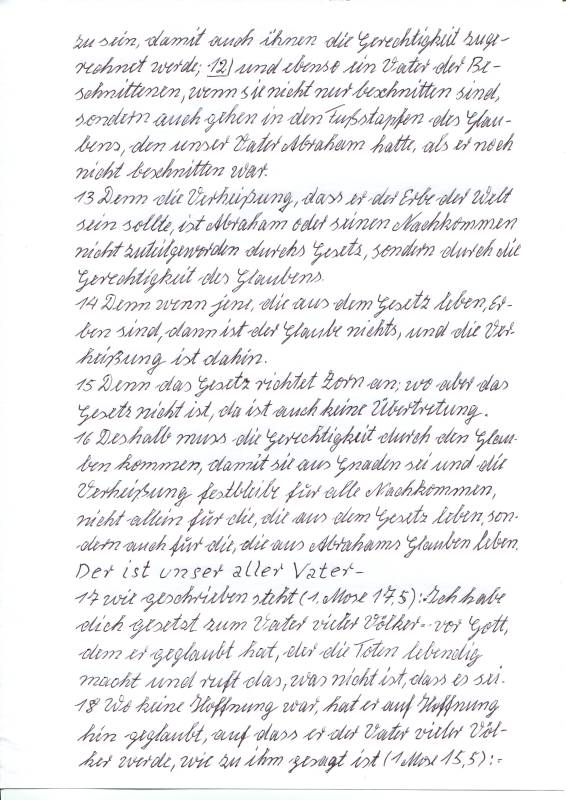 zu sein, damit auch ihnen die Gerechtigkeit zuge-
rechnet werde; 12) und ebenso ein Vater der Be-
schnittenen, wenn sie nicht nur beschnitten sind,
sondern auch gehen in den Fußstapfen des Glau-
bens, den unser Vater Abraham hatte, als er noch
nicht beschnitten war.
13 Denn die Verheißung, dass er der Erbe der Welt
sein sollte, ist Abraham oder seinen Nachkommen
nicht zuteilgeworden durchs Gesetz, sondern durch die
Gerechtigkeit des Glaubens.
14 Denn wenn jene, die aus dem Gesetz leben, Er-
ben sind, dann ist der Glaube nichts, und die Ver-
heißung ist dahin.
15 Denn das Gesetz richtet Zorn an; wo aber das
Gesetz nicht ist, da ist auch keine Übertretung.
16 Deshalb muss die Gerechtigkeit durch den Glau-
ben kommen, damit sie aus Gnaden sei und die
Verheißung festbleibe für alle Nachkommen,
nicht allein für die, die aus dem Gesetz leben, son-
dern auch für die, die aus Abrahams Glauben leben.
Der ist unser aller Vater-
17 wie geschrieben steht (1. Mose 17,5): Ich habe
dich gesetzt zum Vater vieler Völker-- vor Gott,
dem er geglaubt hat, der die Toten lebendig
macht und ruft das, was nicht ist, dass es sei.
18 Wo keine Hoffnung war, hat er auf Hoffnung
hin geglaubt, auf dass er der Vater vieler Völ-
ker werde, wie zu ihm gesagt ist (1 Mose 15,5):-